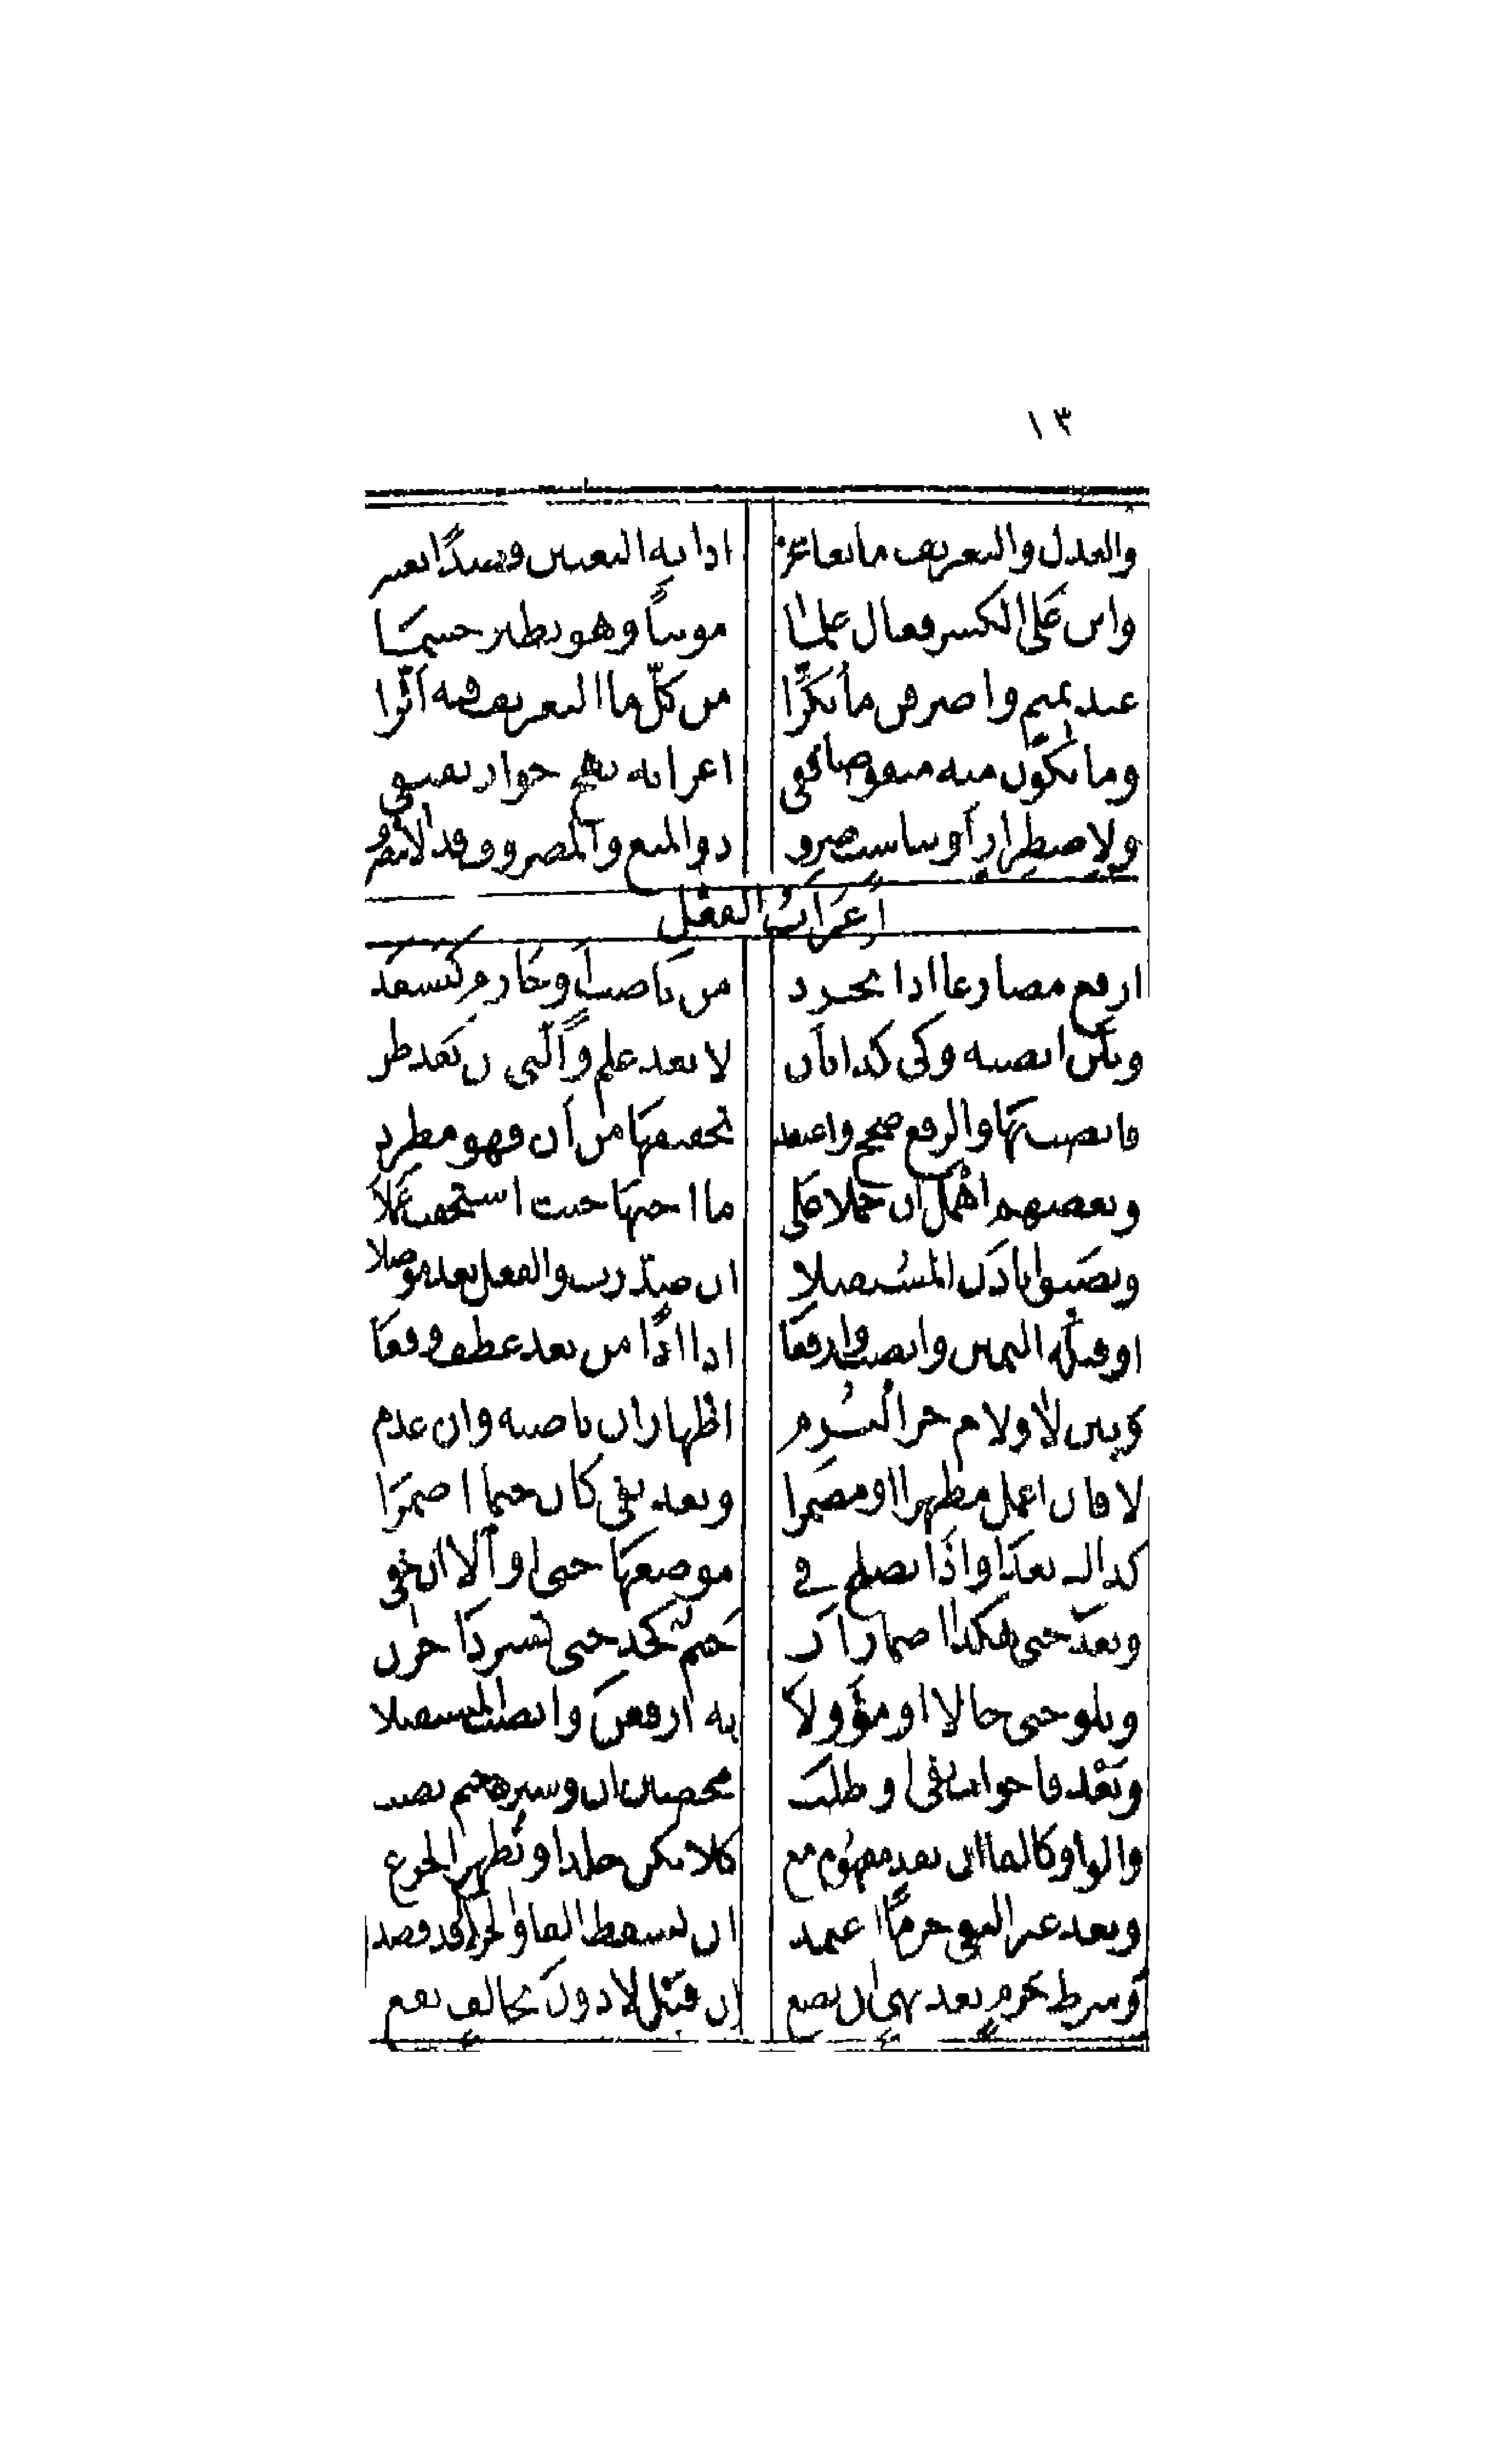 ١٣
والعدل والتعريف مانعا سحر اذا به التعيين قصدا يعتبر
وابن على الكسر فعال علما مونثا وهو نظير جشما
عند تميم واصرفن ما نكرا من كل ما التعريف فيه اثرا
وما يكون منه منقوصا ففي اعرابه نهج جوار يقتفي
ولاضطرار أو تناسب صرف ذو المنع والمصروف قد لا ينصرف
إعراب الفعل
ارفع مضارعا اذا يجرد من ناصب وجازم كتسعد
وبلن انصبه وكي كذا بأن لا بعد علم والتي من بعد ظن
فانصب بها والرفع صحح واعتقد تخفيفها من أن فهو مطرد
وبعضهم اهمل ان حملا على ما اختها حيث استحقت عملا
ونصبوا باذن المستقبلا ان صدرت والفعل بعد موصلا
او قبله اليمين وانصب وارفعا اذا اذًا من بعد عطف وقعا
وبين لا ولام جر التزم اظهار ان ناصبة وان عدم
لا فان اعمل مظهرا او مضمرا وبعد نفي كان حتما اضمرا
كذاك بعد او اذا يصلح في موضعها حتى او الا ان خفي
وبعد حتى هكذا اضمار ان حتم كجد حتى تسر ذا حزن
وتلو حتى حالا او مؤولا به ارفعن وانصب المستقبلا
وبعد فا جواب نفي او طلب محضين ان وسترها حتم نصب
والواو كالفا ان تفد مفهوم مع كلا تكن جلدا وتظهر الجزع
وبعد غير النفي جزما اعتمد ان تسقط الفا والجزاء قد قصد
وشرط جزم بعد نهي ان تضع ان قبل لا دون تخالف يقع